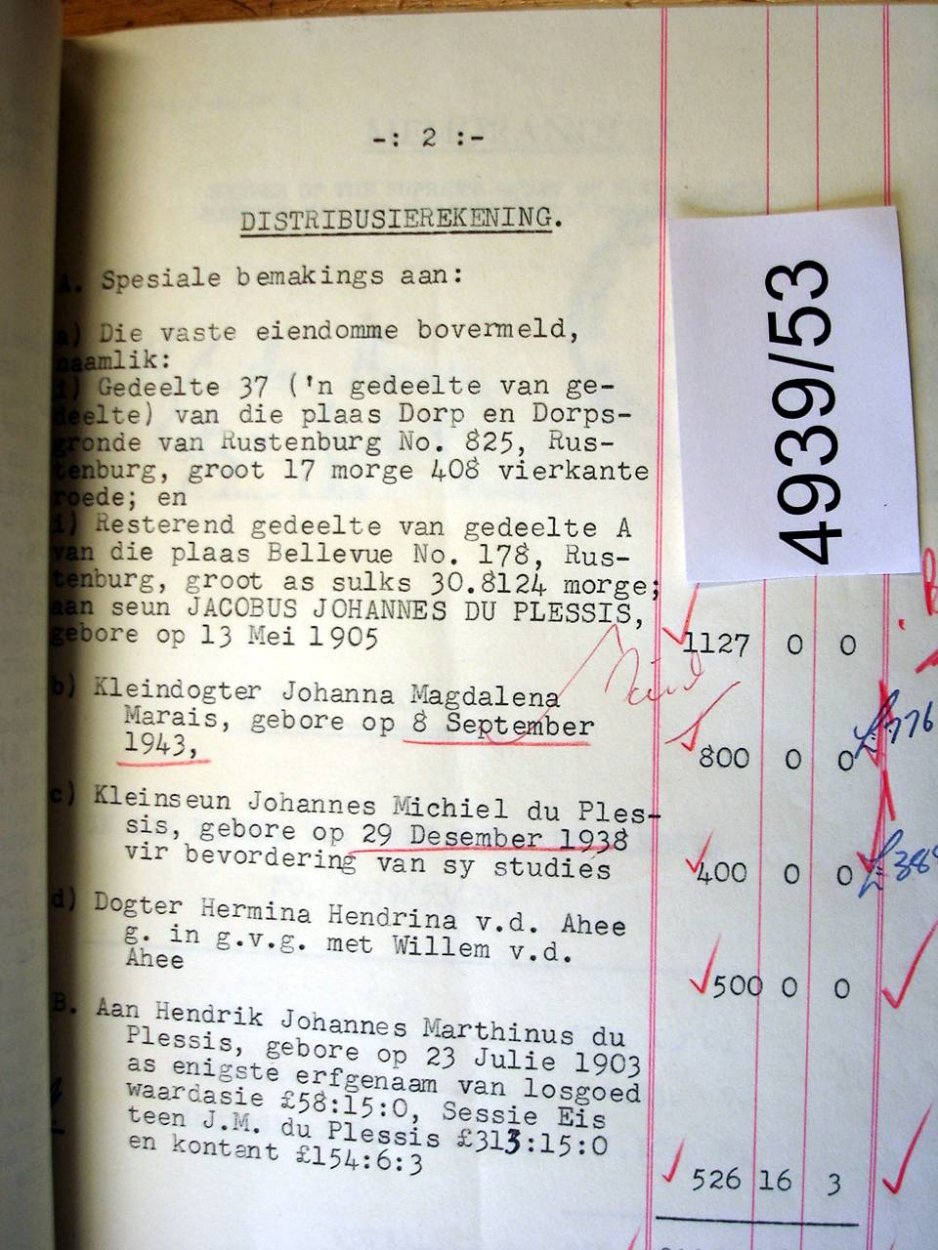 -: 2 :-
DISTRIBUSIEREKENING.
A. Spesiale bemakings aan:
a) Die vaste eiendomme bovermeld,
naamlik:
i) Gedeelte 37 ('n gedeelte van ge-
deelte) van die plaas Dorp en Dorps-
gronde van Rustenburg No. 825, Rus-
tenburg, groot 17 morge 408 vierkante
roede; en
i) Resterend gedeelte van gedeelte A
van die plaas Bellevue No. 178, Rus-
tenburg, groot as sulks 30.8124 morge;
aan seun JACOBUS JOHANNES DU PLESSIS,
gebore op 13 Mei 1905 1127 0 0
b) Kleindogter Johanna Magdalena
Marais, gebore op 8 September
1943, 800 0 0 £776
c) Kleinseun Johannes Michiel du Ples-
sis, gebore op 29 Desember 1938
vir bevordering van sy studies 400 0 0
d) Dogter Hermina Hendrina v.d. Ahee
g. in g.v.g. met Willem v.d.
Ahee 500 0 0
B. Aan Hendrik Johannes Marthinus du
Plessis, gebore op 23 Julie 1903
as enigste erfgenaam van losgoed
waardasie £58:15:0, Sessie Eis
teen J.M. du Plessis £313:15:0
en kontant £154:6:3 526 16 3
4939/53